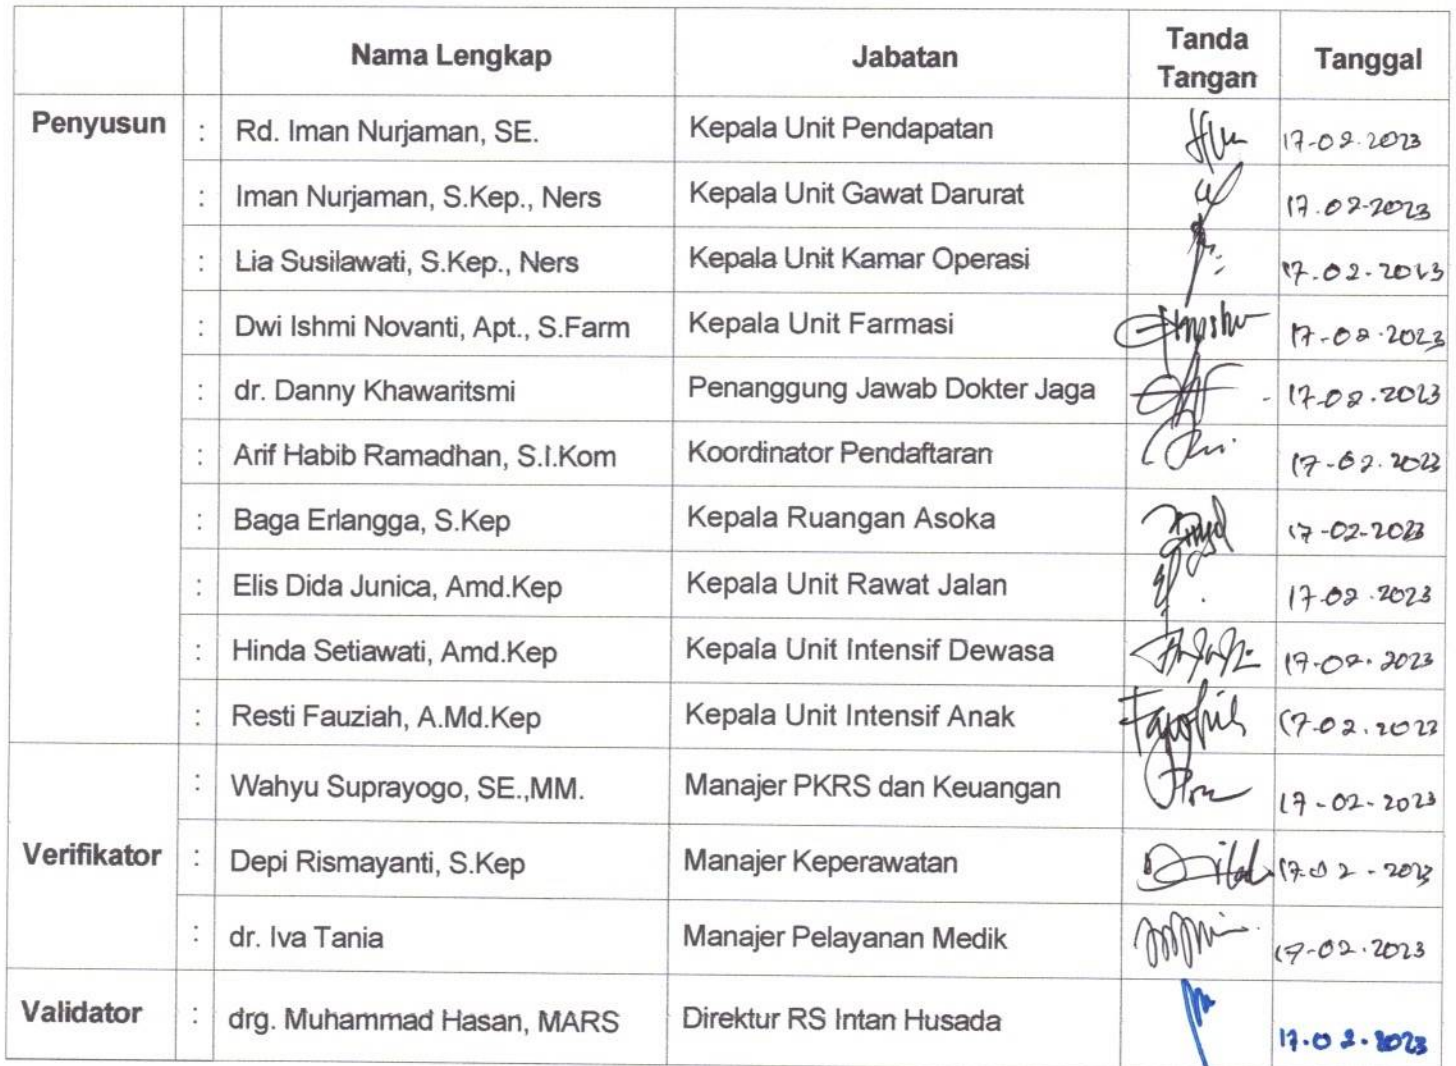 Nama Lengkap Jabatan Tanda Tangan Tanggal
Penyusun : Rd. Iman Nurjaman, SE. Kepala Unit Pendapatan 17-02-2023
: Iman Nurjaman, S.Kep., Ners Kepala Unit Gawat Darurat 17.02-2023
: Lia Susilawati, S.Kep., Ners Kepala Unit Kamar Operasi 17.02-2023
: Dwi Ishmi Novanti, Apt., S.Farm Kepala Unit Farmasi 17-02-2023
: dr. Danny Khawaritsmi Penanggung Jawab Dokter Jaga 17-02.2023
: Arif Habib Ramadhan, S.I.Kom Koordinator Pendaftaran 17-02.2023
: Baga Erlangga, S.Kep Kepala Ruangan Asoka 17-02-2023
: Elis Dida Junica, Amd.Kep Kepala Unit Rawat Jalan 17-02.2023
: Hinda Setiawati, Amd.Kep Kepala Unit Intensif Dewasa 17-02.2023
: Resti Fauziah, A.Md.Kep Kepala Unit Intensif Anak 17-02.2023
: Wahyu Suprayogo, SE.,MM. Manajer PKRS dan Keuangan 17-02-2023
Verifikator : Depi Rismayanti, S.Kep Manajer Keperawatan 17.02-2023
: dr. Iva Tania Manajer Pelayanan Medik 17-02.2023
Validator : drg. Muhammad Hasan, MARS Direktur RS Intan Husada 17.02.2023